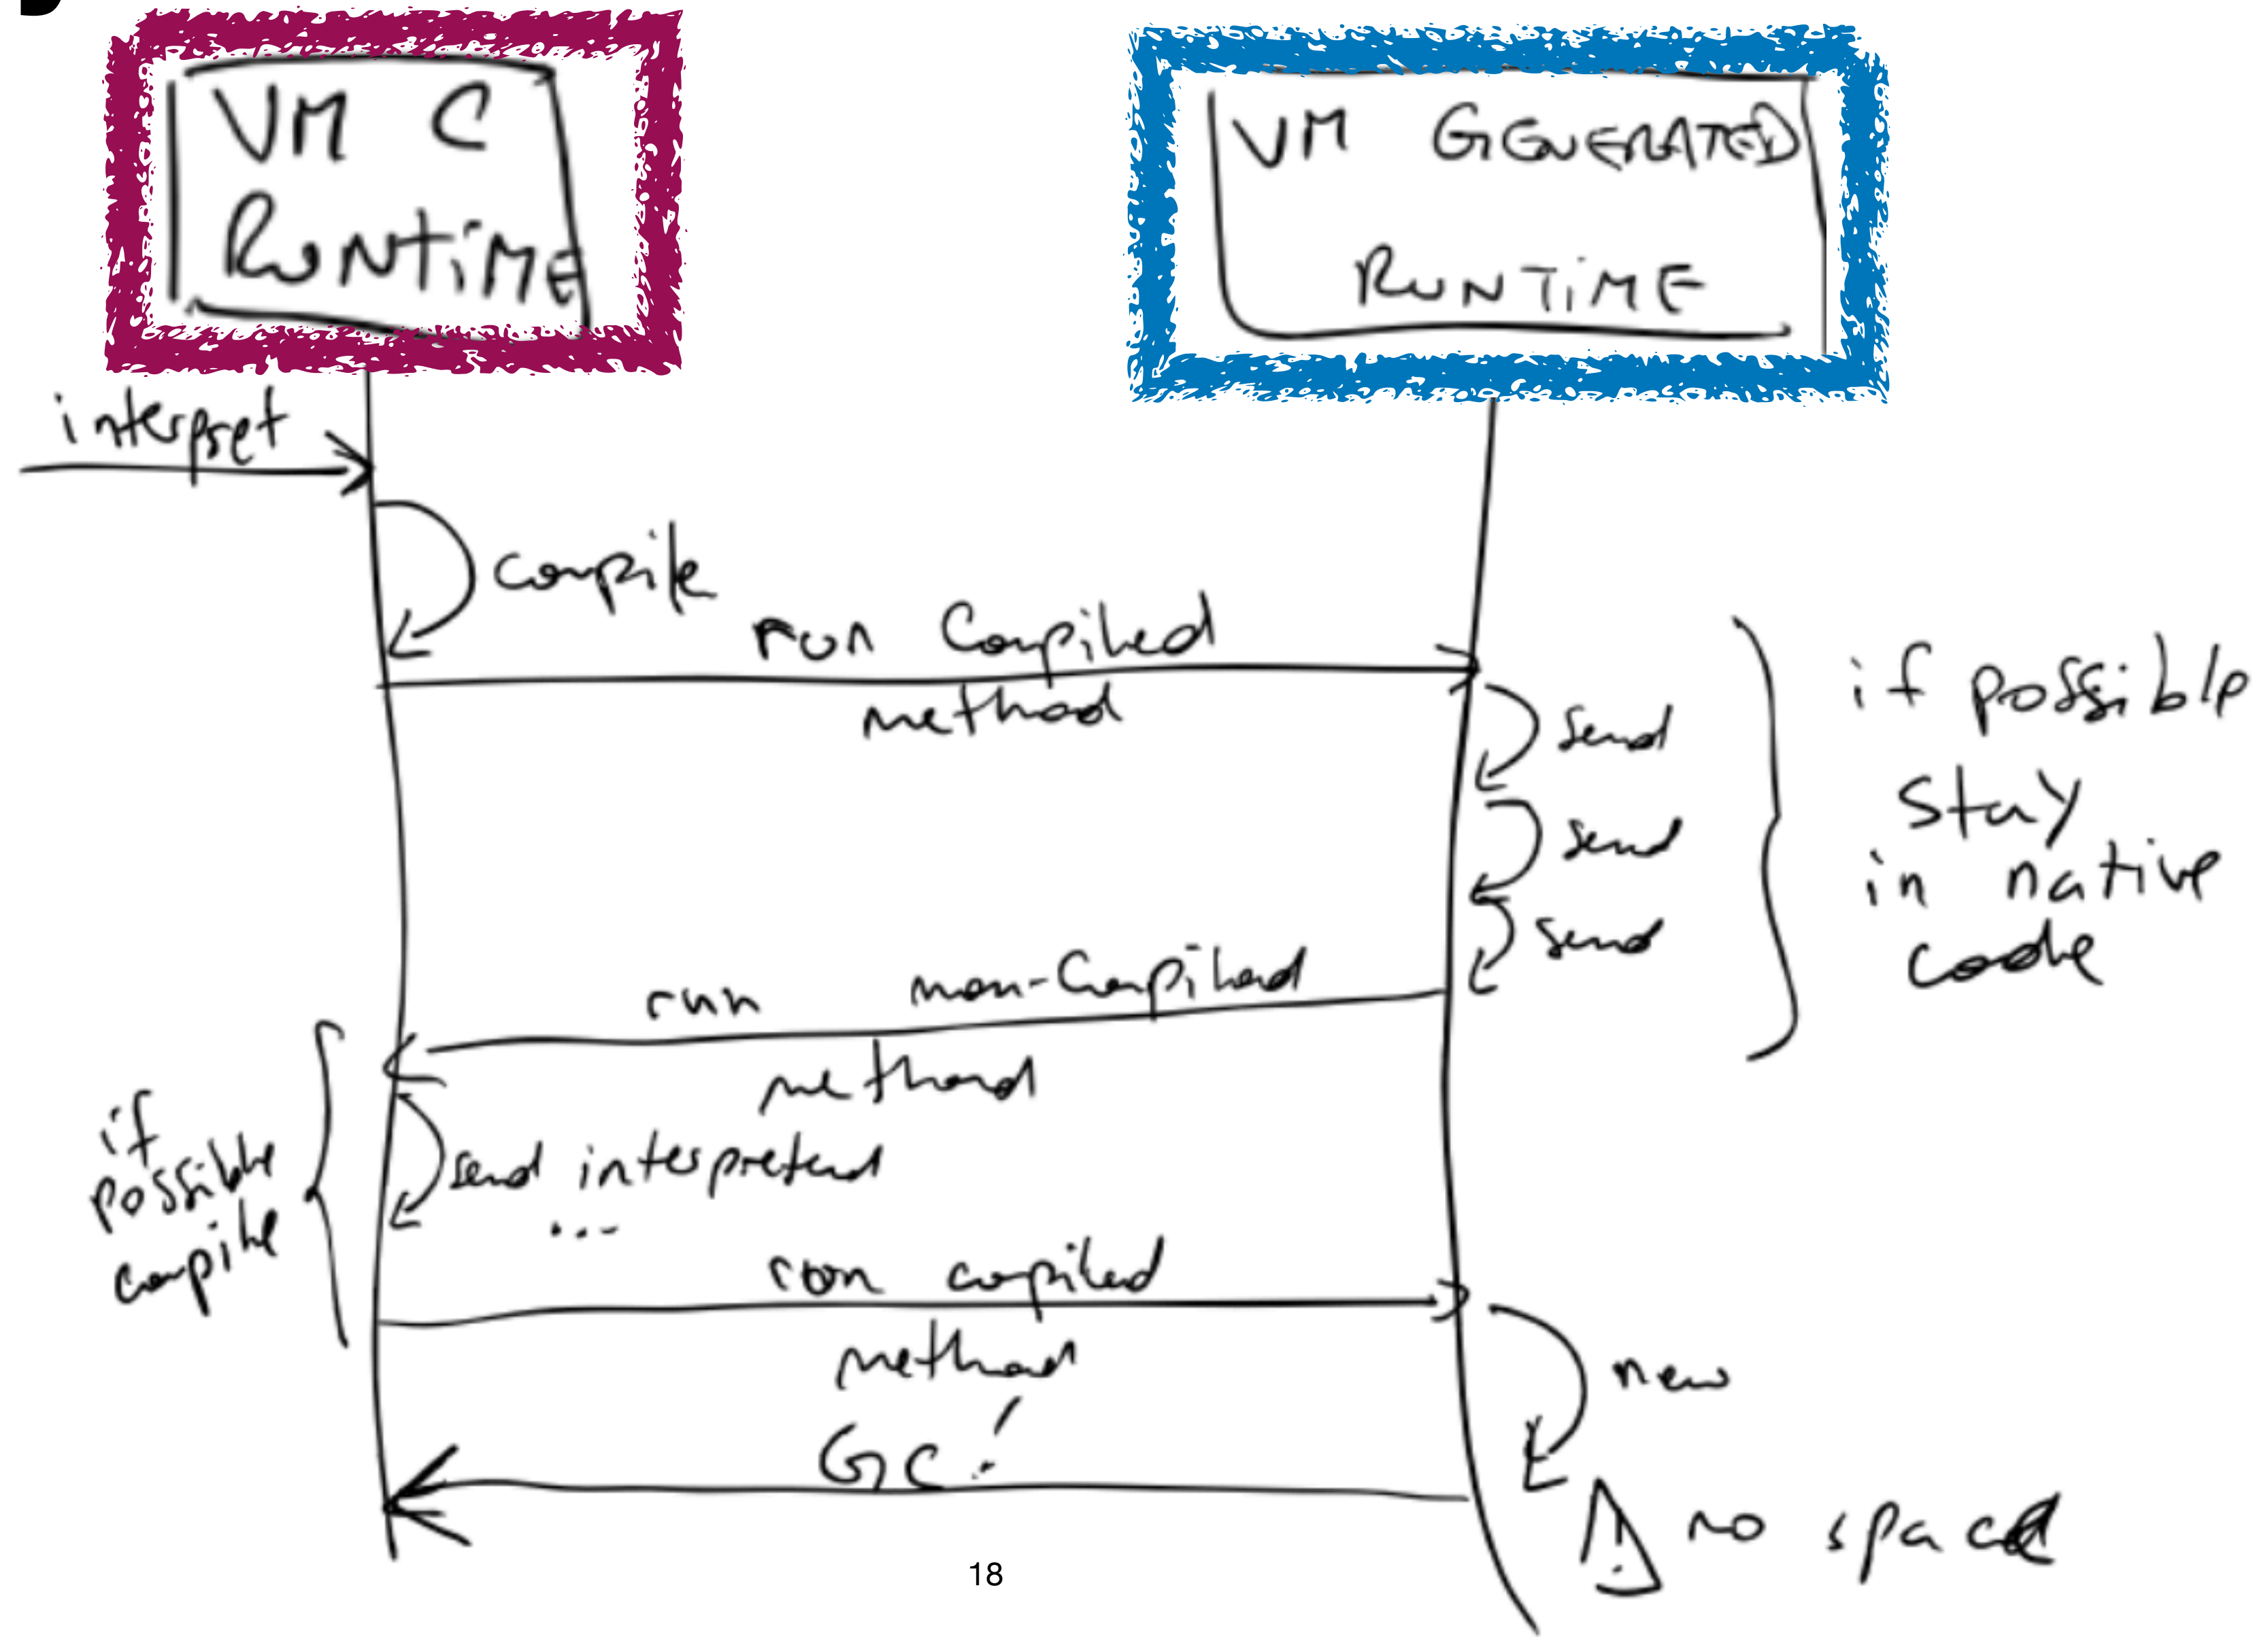 VM C
RUNTIME
VM GENERATED
RUNTIME
interpret
compile
run Compiled
method
send
send
send
if possible
stay
in native
code
run non-Compiled
method
if
possible
compile
send interpreted
...
run compiled
method
new
GC!
no space
18